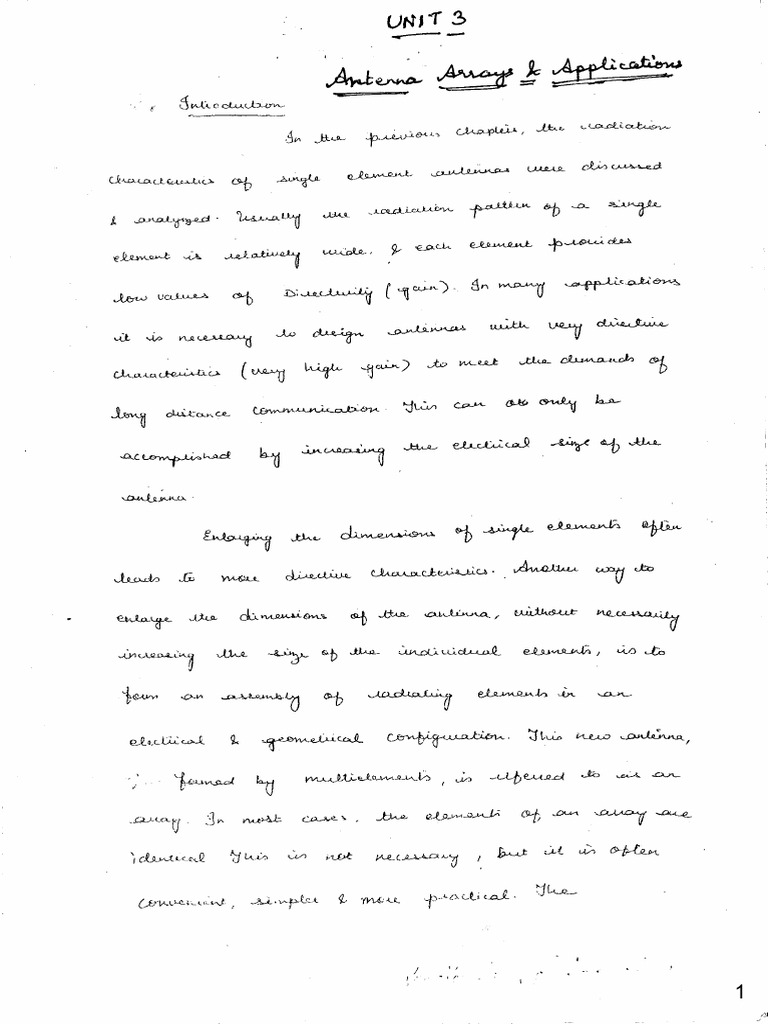 UNIT 3
Antenna Arrays & Applications
Introduction
In the previous chapters, the radiation
characteristics of single element antennas were discussed
& analyzed. Usually the radiation pattern of a single
element is relatively wide, & each element provides
low values of Directivity (gain). In many applications
it is necessary to design antennas with very directive
characteristics (very high gain) to meet the demands of
long distance communication. This can only be
accomplished by increasing the electrical size of the
antenna.
Enlarging the dimensions of single elements often
leads to more directive characteristics. Another way to
enlarge the dimensions of the antenna, without necessarily
increasing the size of the individual elements, is to
form an assembly of radiating elements in an
electrical & geometrical configuration. This new antenna,
formed by multielements, is referred to as an
array. In most cases, the elements of an array are
identical This is not necessary, but it is often
convenient, simpler & more practical. The
1